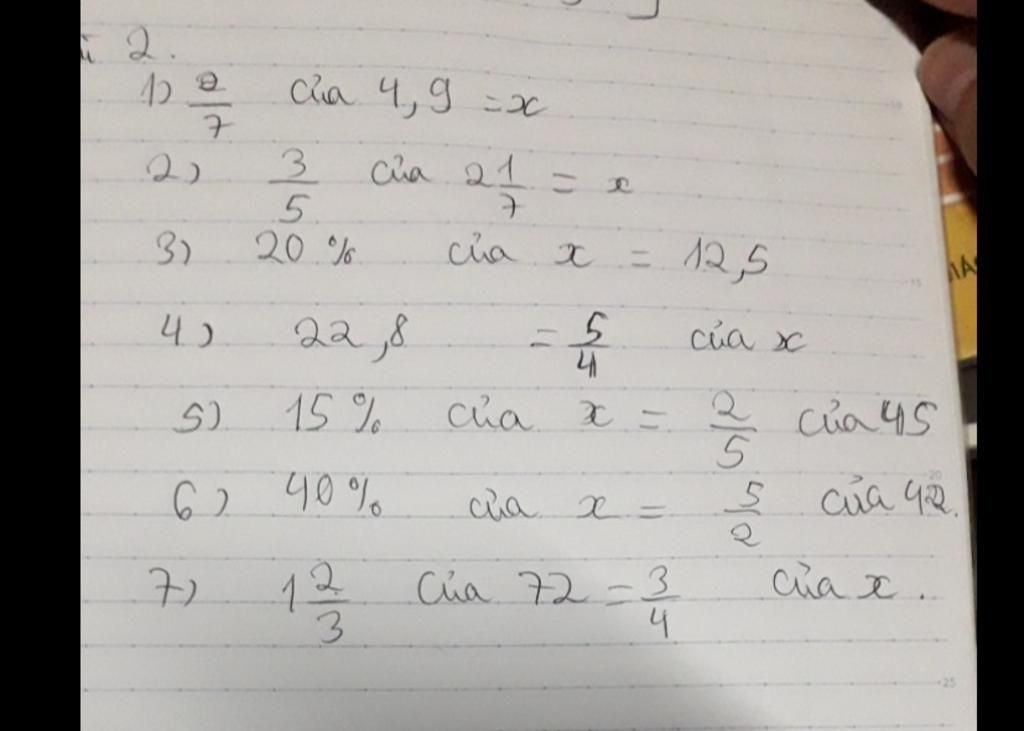 2.
1) 2/7 của 4,9 = x
2) 3/5 của 2 1/7 = x
3) 20% của x = 12,5
4) 22,8 = 5/4 của x
5) 15% của x = 2/5 của 45
6) 40% của x = 5/2 của 42.
7) 1 2/3 của 72 = 3/4 của x.